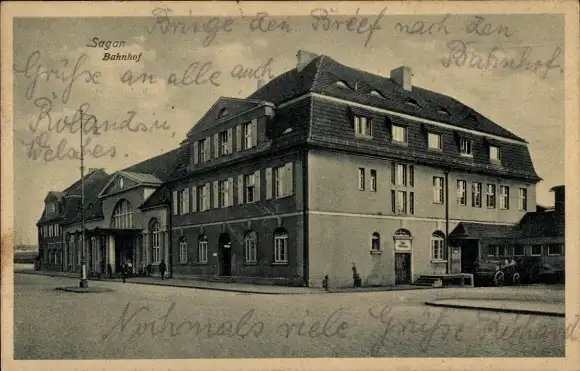 Sagan
Bahnhof
Bringe den Brief nach dem
Bahnhof.
Grüße an alle auch
Rolands u.
Welas.
Nochmals viele Grüße Richard